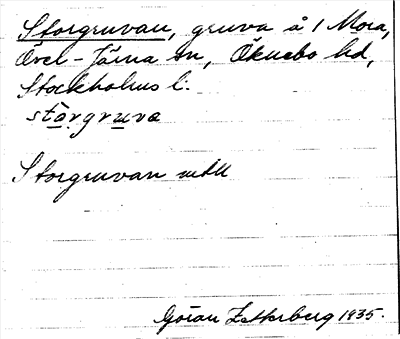 Storgruvan, gruva å 1 Mora,
Över-Järna sn, Öknebo hd,
Stockholms l.
stòrgruva
Storgruvan
Göran Zetterberg 1935.